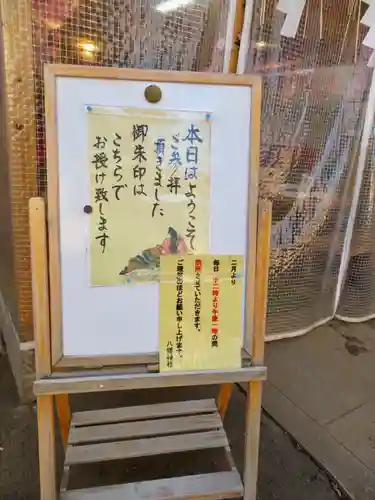 本日はようこそ
ご参拝
頂きました
御朱印は
こちらで
お授け致します
二月より
毎日 十二時より午後一時の間
閉所させていただきます。
ご理解のほどお願い申し上げます。
八幡神社